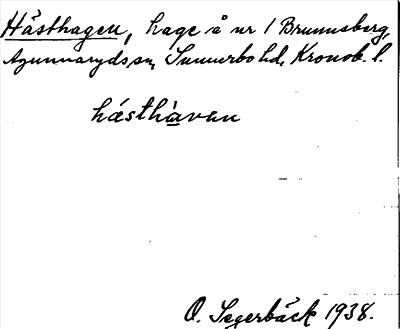 Hästhagen, hage å nr 1 Brunnsberg,
Agunnaryds sn, Sunnerbo hd, Kronob. l.
hásthàvan
O. Segerbäck 1938.